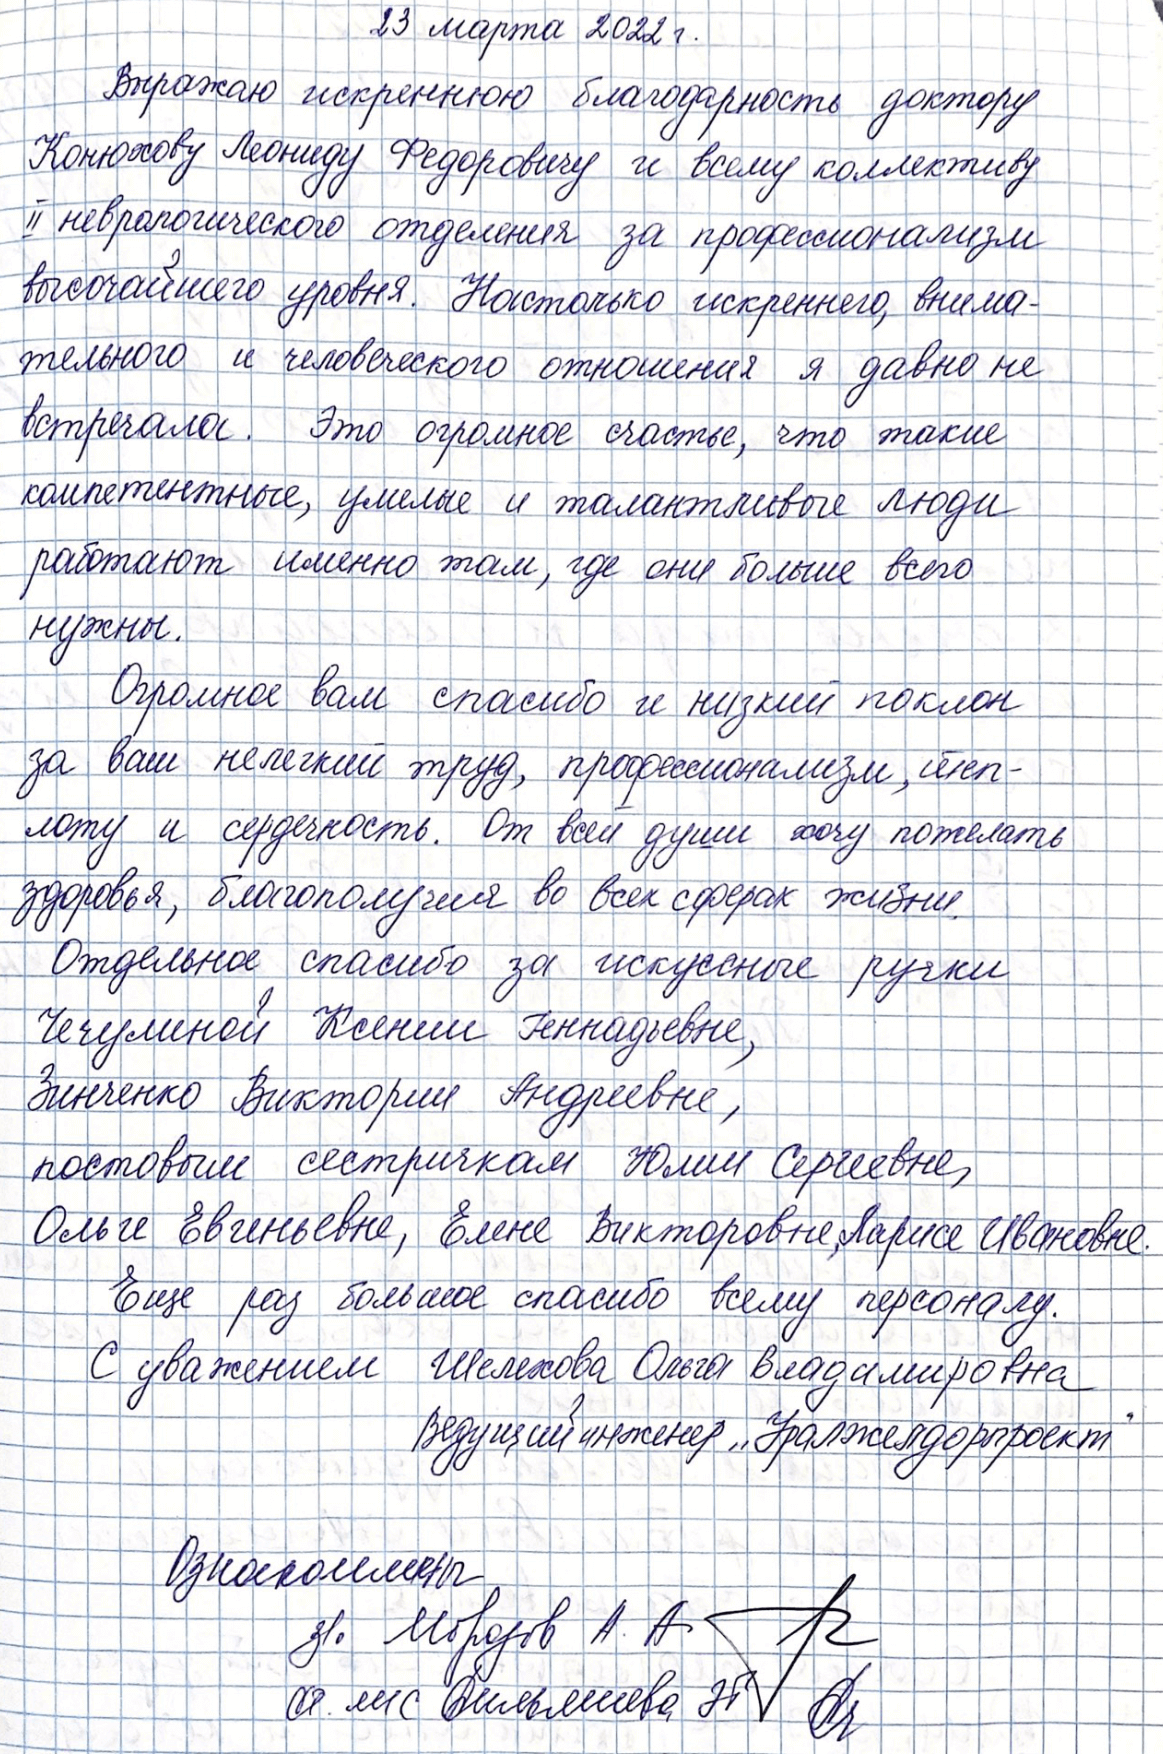 23 марта 2022 г.
Выражаю искреннюю благодарность доктору
Конюхову Леониду Федоровичу и всему коллективу
II неврологического отделения за профессионализм
высочайшего уровня. Настолько искреннего, внима-
тельного и человеческого отношения я давно не
встречала. Это огромное счастье, что такие
компетентные, умелые и талантливые люди
работают именно там, где они больше всего
нужны.
Огромное вам спасибо и низкий поклон
за ваш нелегкий труд, профессионализм, теп-
лоту и сердечность. От всей души хочу пожелать
здоровья, благополучия во всех сферах жизни.
Отдельное спасибо за искуссные ручки
Чечулиной Ксении Геннадьевне,
Зинченко Виктории Андреевне,
постовым сестричкам Юлии Сергеевне,
Ольге Евгеньевне, Елене Викторовне, Ларисе Ивановне.
Еще раз большое спасибо всему персоналу.
С уважением Шелехова Ольга Владимировна
Ведущий инженер „Уралжелдорпроект"
Ознакомлены
Морозов А. А.
ст. м/с